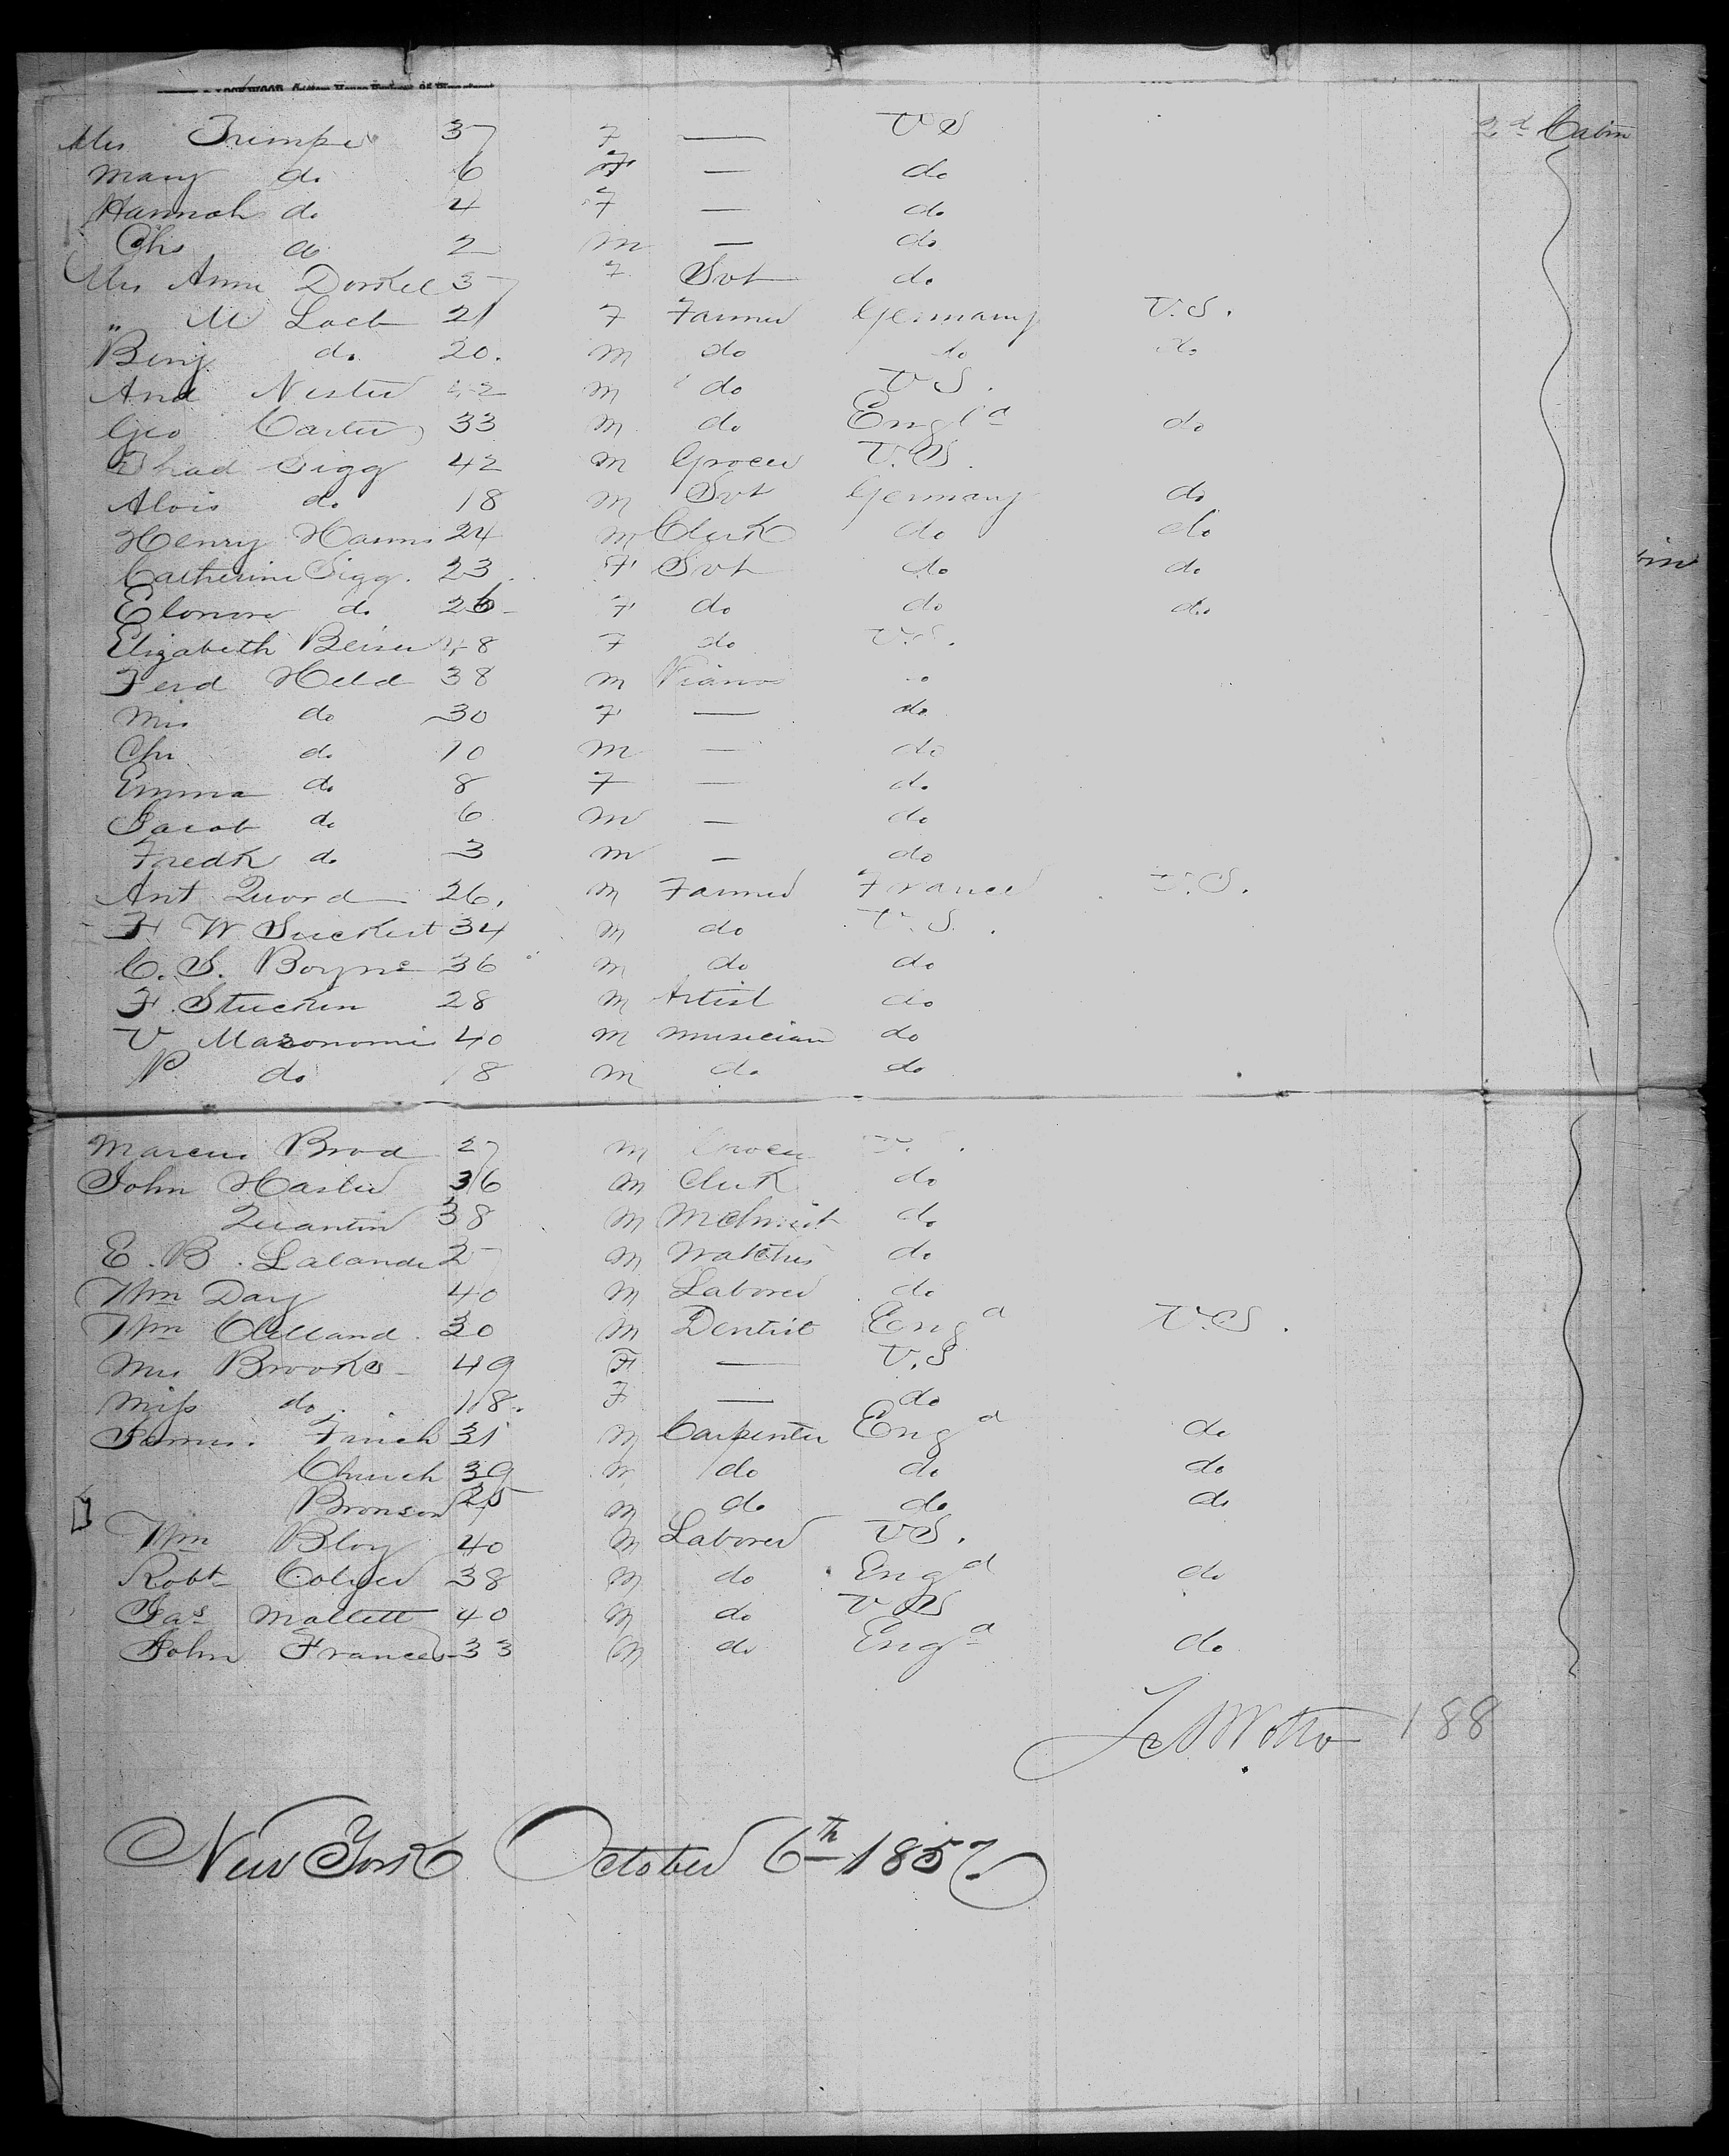 Mrs Trimper 37 F — U S 2d Cabin
Mary do 6 F — do
Hannah do 4 F — do
Chs do 2 M — do
Mrs Anna 37 F Svt do
" M Loeb 21 F Farmer Germany U.S.
Benj do 20. M do do do
And Nester 42 M do U S.
Geo Carter 33 M do Engld do
Thad Sigg 42 M Grocer U.S.
Alois do 18 M Svt Germany do
Henry 24 M Clerk do do
Catherine Sigg. 23 F Svt do do
Elonore do 26 F do do do
Elizabeth 48 F do U.S.
Ferd Held 38 M Piano do
Mrs do 30 F — do
Chr do 10 M — do
Emma do 8 F — do
Jacob do 6 M — do
Fredk do 3 M — do
Ant 26. M Farmer France U.S.
F W Suckert 34 M do U.S.
C. S. Boyne 36 M do do
F. Stucken 28 M Artist do
V 40 M Musician do
P do 18 M do do
Marcus Brod 27 M Grocer U.S.
John Haster 36 M Clerk do
Quantin 38 M do
E. B. Lalande 27 M Watches do
Wm Day 40 M Laborer do
Wm Clelland. 30 M Dentist Engd U.S.
Mrs Brooks 49 F — U.S
Miss do 18. F — do
31 M Carpenter Engd do
Church 39 M do do do
Bronson 25 M do do do
Wm Bloy 40 M Laborer US.
Robt Colyer 38 M do Engd do
Jas Mallett 40 M do U S
John Frances 33 M do Engd do
188
New York October 6th 1857